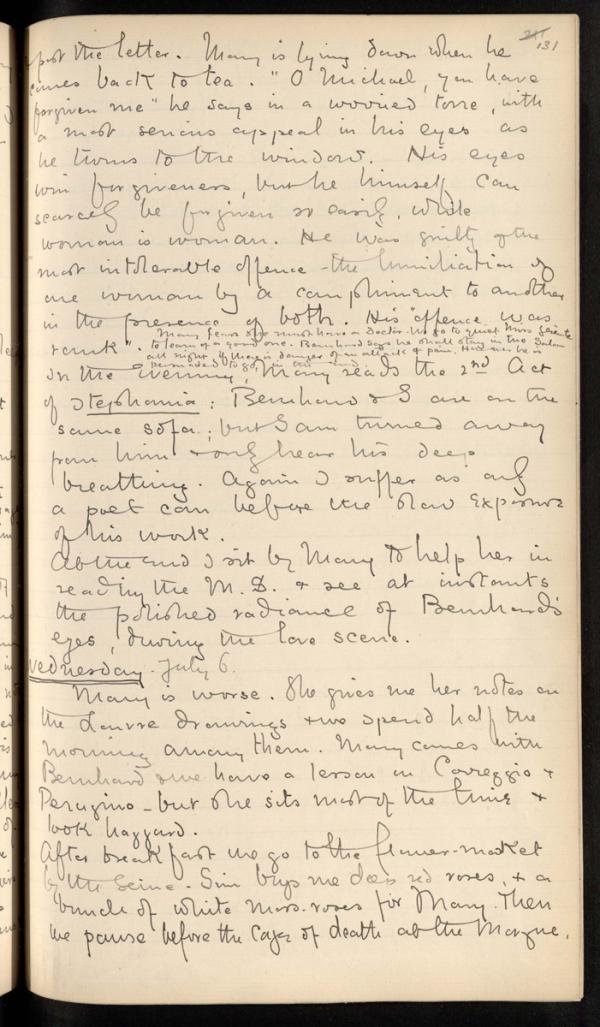 211
131
post the letter. Mary is lying down when he
comes back to tea. "O Michael, you have
forgiven me" he says in a worried tone, with
a most serious appeal in his eyes as
he turns to the window. His eyes
win forgiveness, but he himself can
scarcely be forgiven so easily, while
woman is woman. He was guilty of the
most intolerable offence - the humiliation of
one woman by a compliment to another
in the presence of both. His "offence was
rank".
Many fears she must have a Doctor. We go to quiet Miss
to learn of a good one. Bernhard says he shall stay in the Salon
all night if there is danger of an attack of pain. However he is
persuaded to go in the end.
In the evening, Mary reads the 2nd Act
of Stephania: Bernhard & I are on the
same sofa; but I am turned away
from him & only hear his deep
breathing. Again I suffer as only
a poet can before the slow exposure
of his work.
At the end I sit by Mary to help her in
reading the M.S. & see at instants
the polished radiance of Bernhard's
eyes, during the love scene.
Wednesday. July 6.
Mary is worse. She gives me her notes on
the Louvre drawings & we spend half the
morning among them. Mary comes with
Bernhard & we have a lesson on Correggio &
Perugino - but she sits most of the time &
look haggard.
After breakfast we go to the flower-market
by the Seine. Sim buys me deep red roses, & a
bunch of white moss-roses for Mary. Then
we pause before the Cage of death at the Morgue.